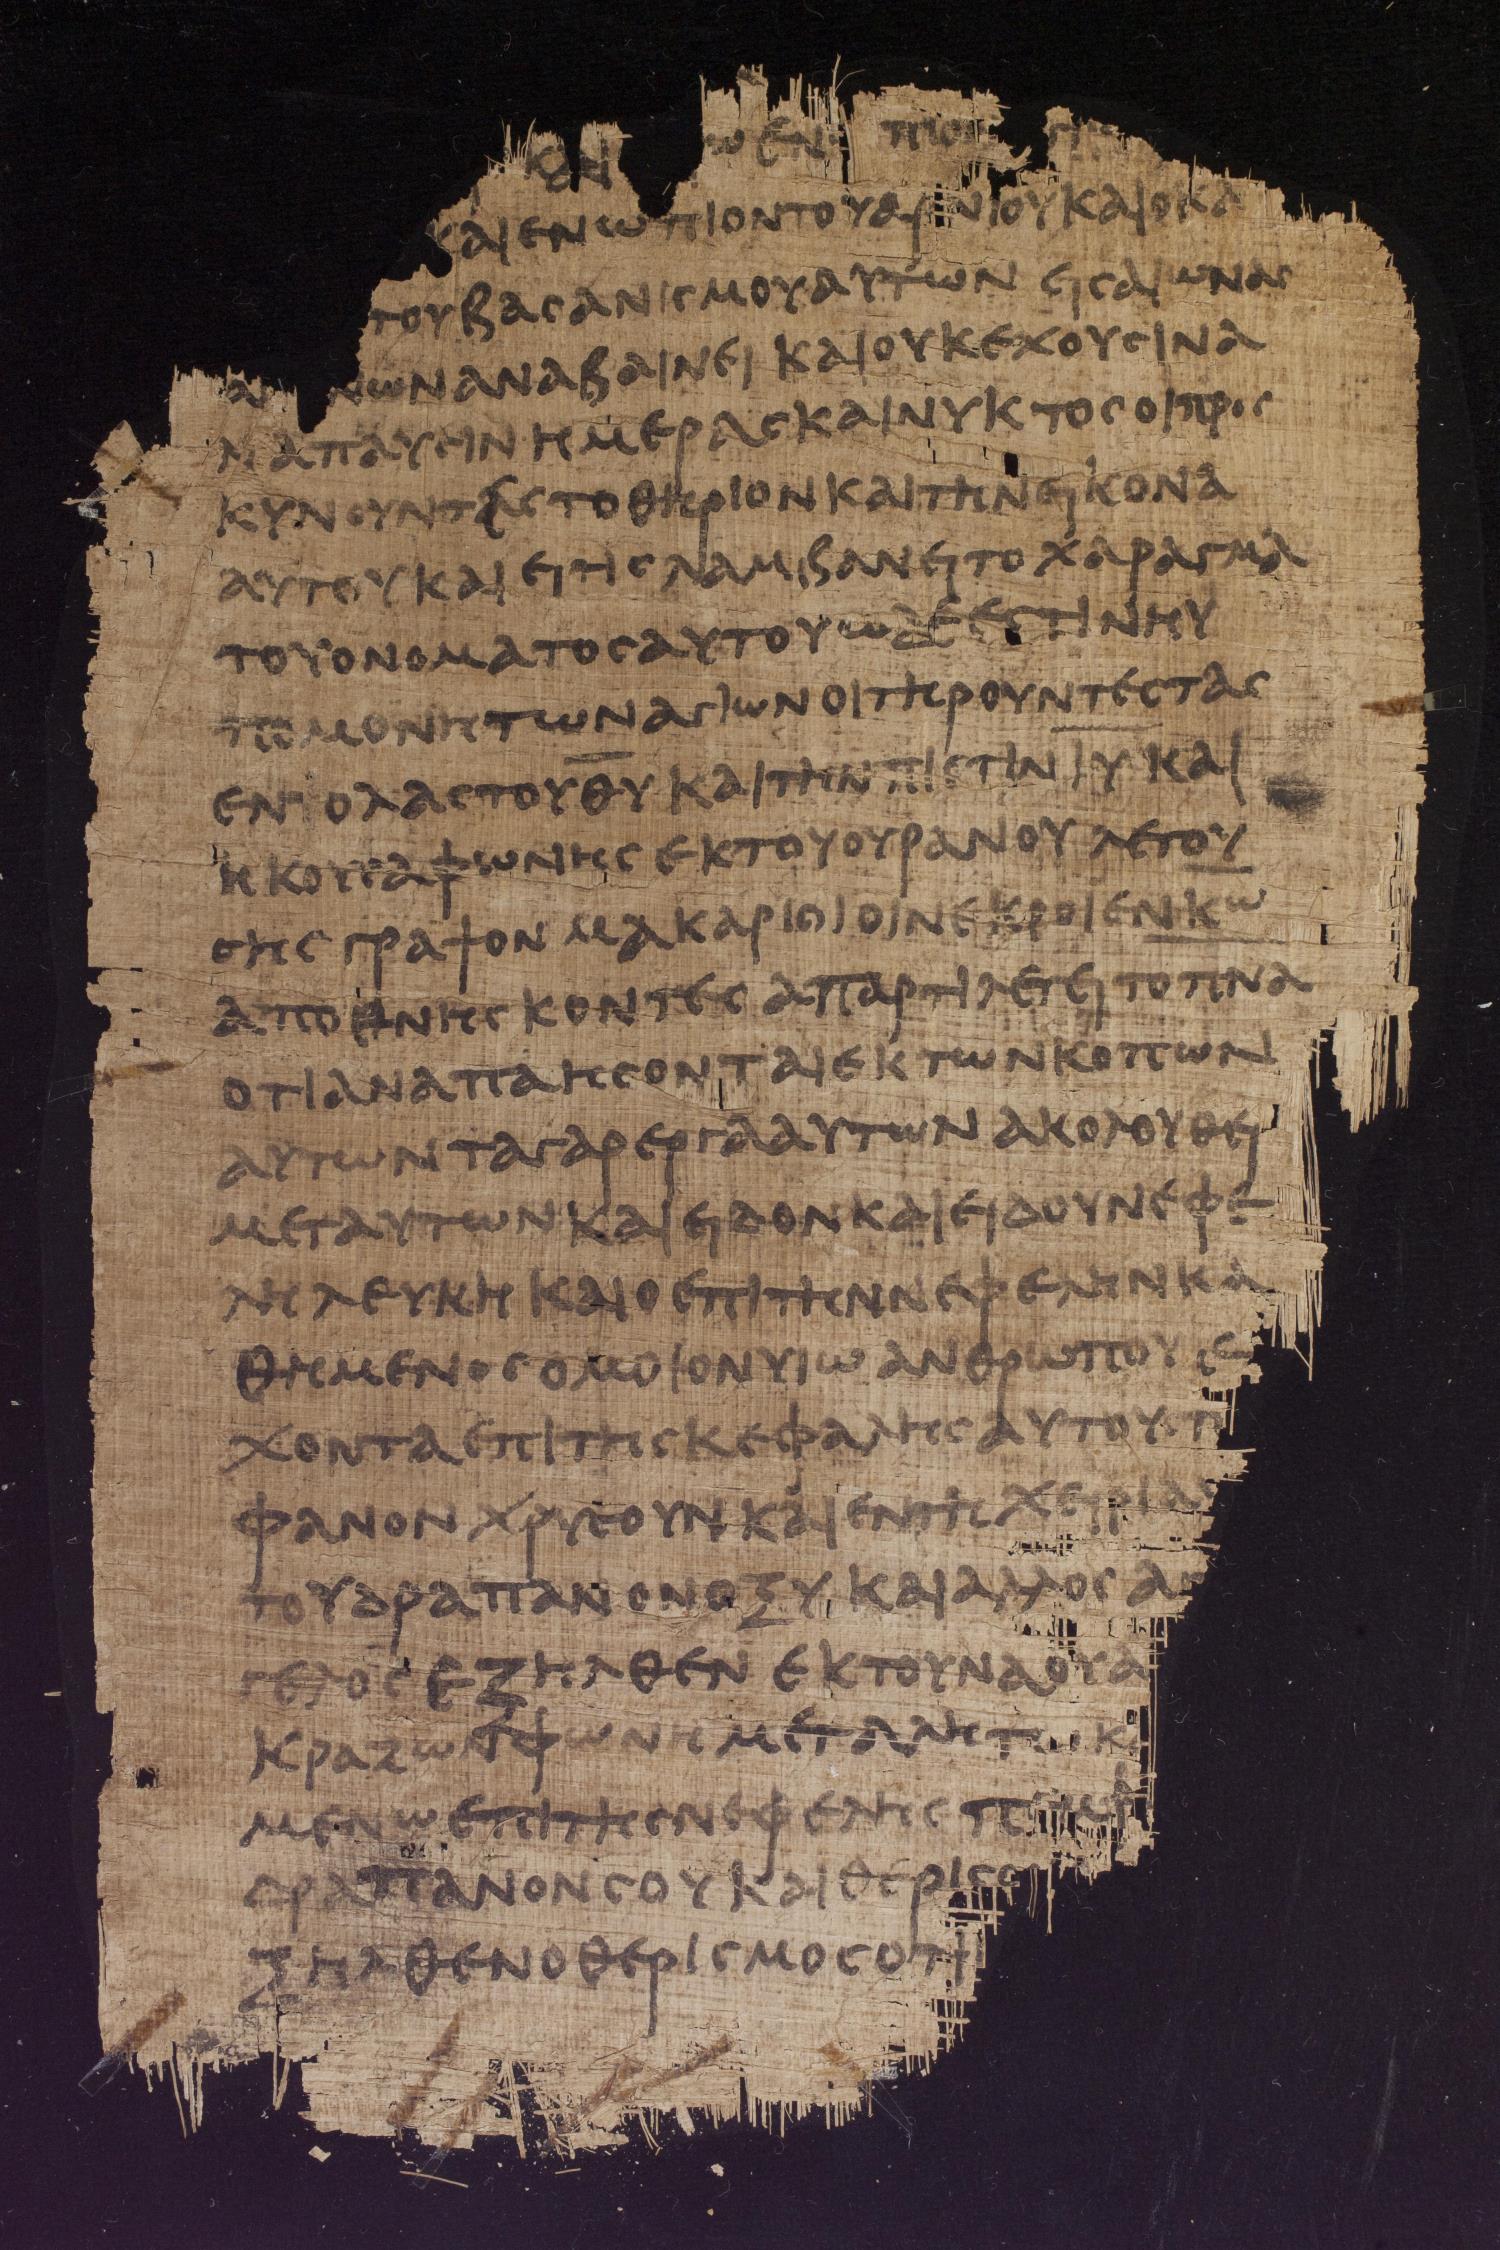 και ενωπιον του αρνιου και ο κα
του βασανισμου αυτων εις αιωνας
νων αναβαινει και ουκ εχουσιν α
ναπαυσιν ημερας και νυκτος οι προσ
κυνουντες το θηριον και την εικονα
αυτου και ει τις λαμβανει το χαραγμα
του ονοματος αυτου ωδε εστιν η υ
πομονη των αγιων οι τηρουντες τας
εντολας του θ̅υ̅ και την πιστιν ι̅υ̅ και
ηκουσα φωνης εκ του ουρανου λεγου
σης γραψον μακαριοι οι νεκροι εν κ̅ω̅
αποθνησκοντες απαρτι λεγει το π̅ν̅α̅
οτι αναπαησονται εκ των κοπων
αυτων τα γαρ εργα αυτων ακολουθει
μετ αυτων και ειδον και ειδου νεφε
λη λευκη και ο επι την νεφελην κα
θημενος ομοιον υιω ανθρωπου ε
χοντα επι της κεφαλης αυτου
φανον χρυσουν και εν τη χειρι αυ
του δραπανον οξυ και αλλος αγ
γελος εξηλθεν εκ του ναου α
κραζων φωνη μεγαλη τω κα
μενω επι της νεφελης πεμψ
δραπανον σου και θερισο
ξηλθεν ο θερισμος οτι